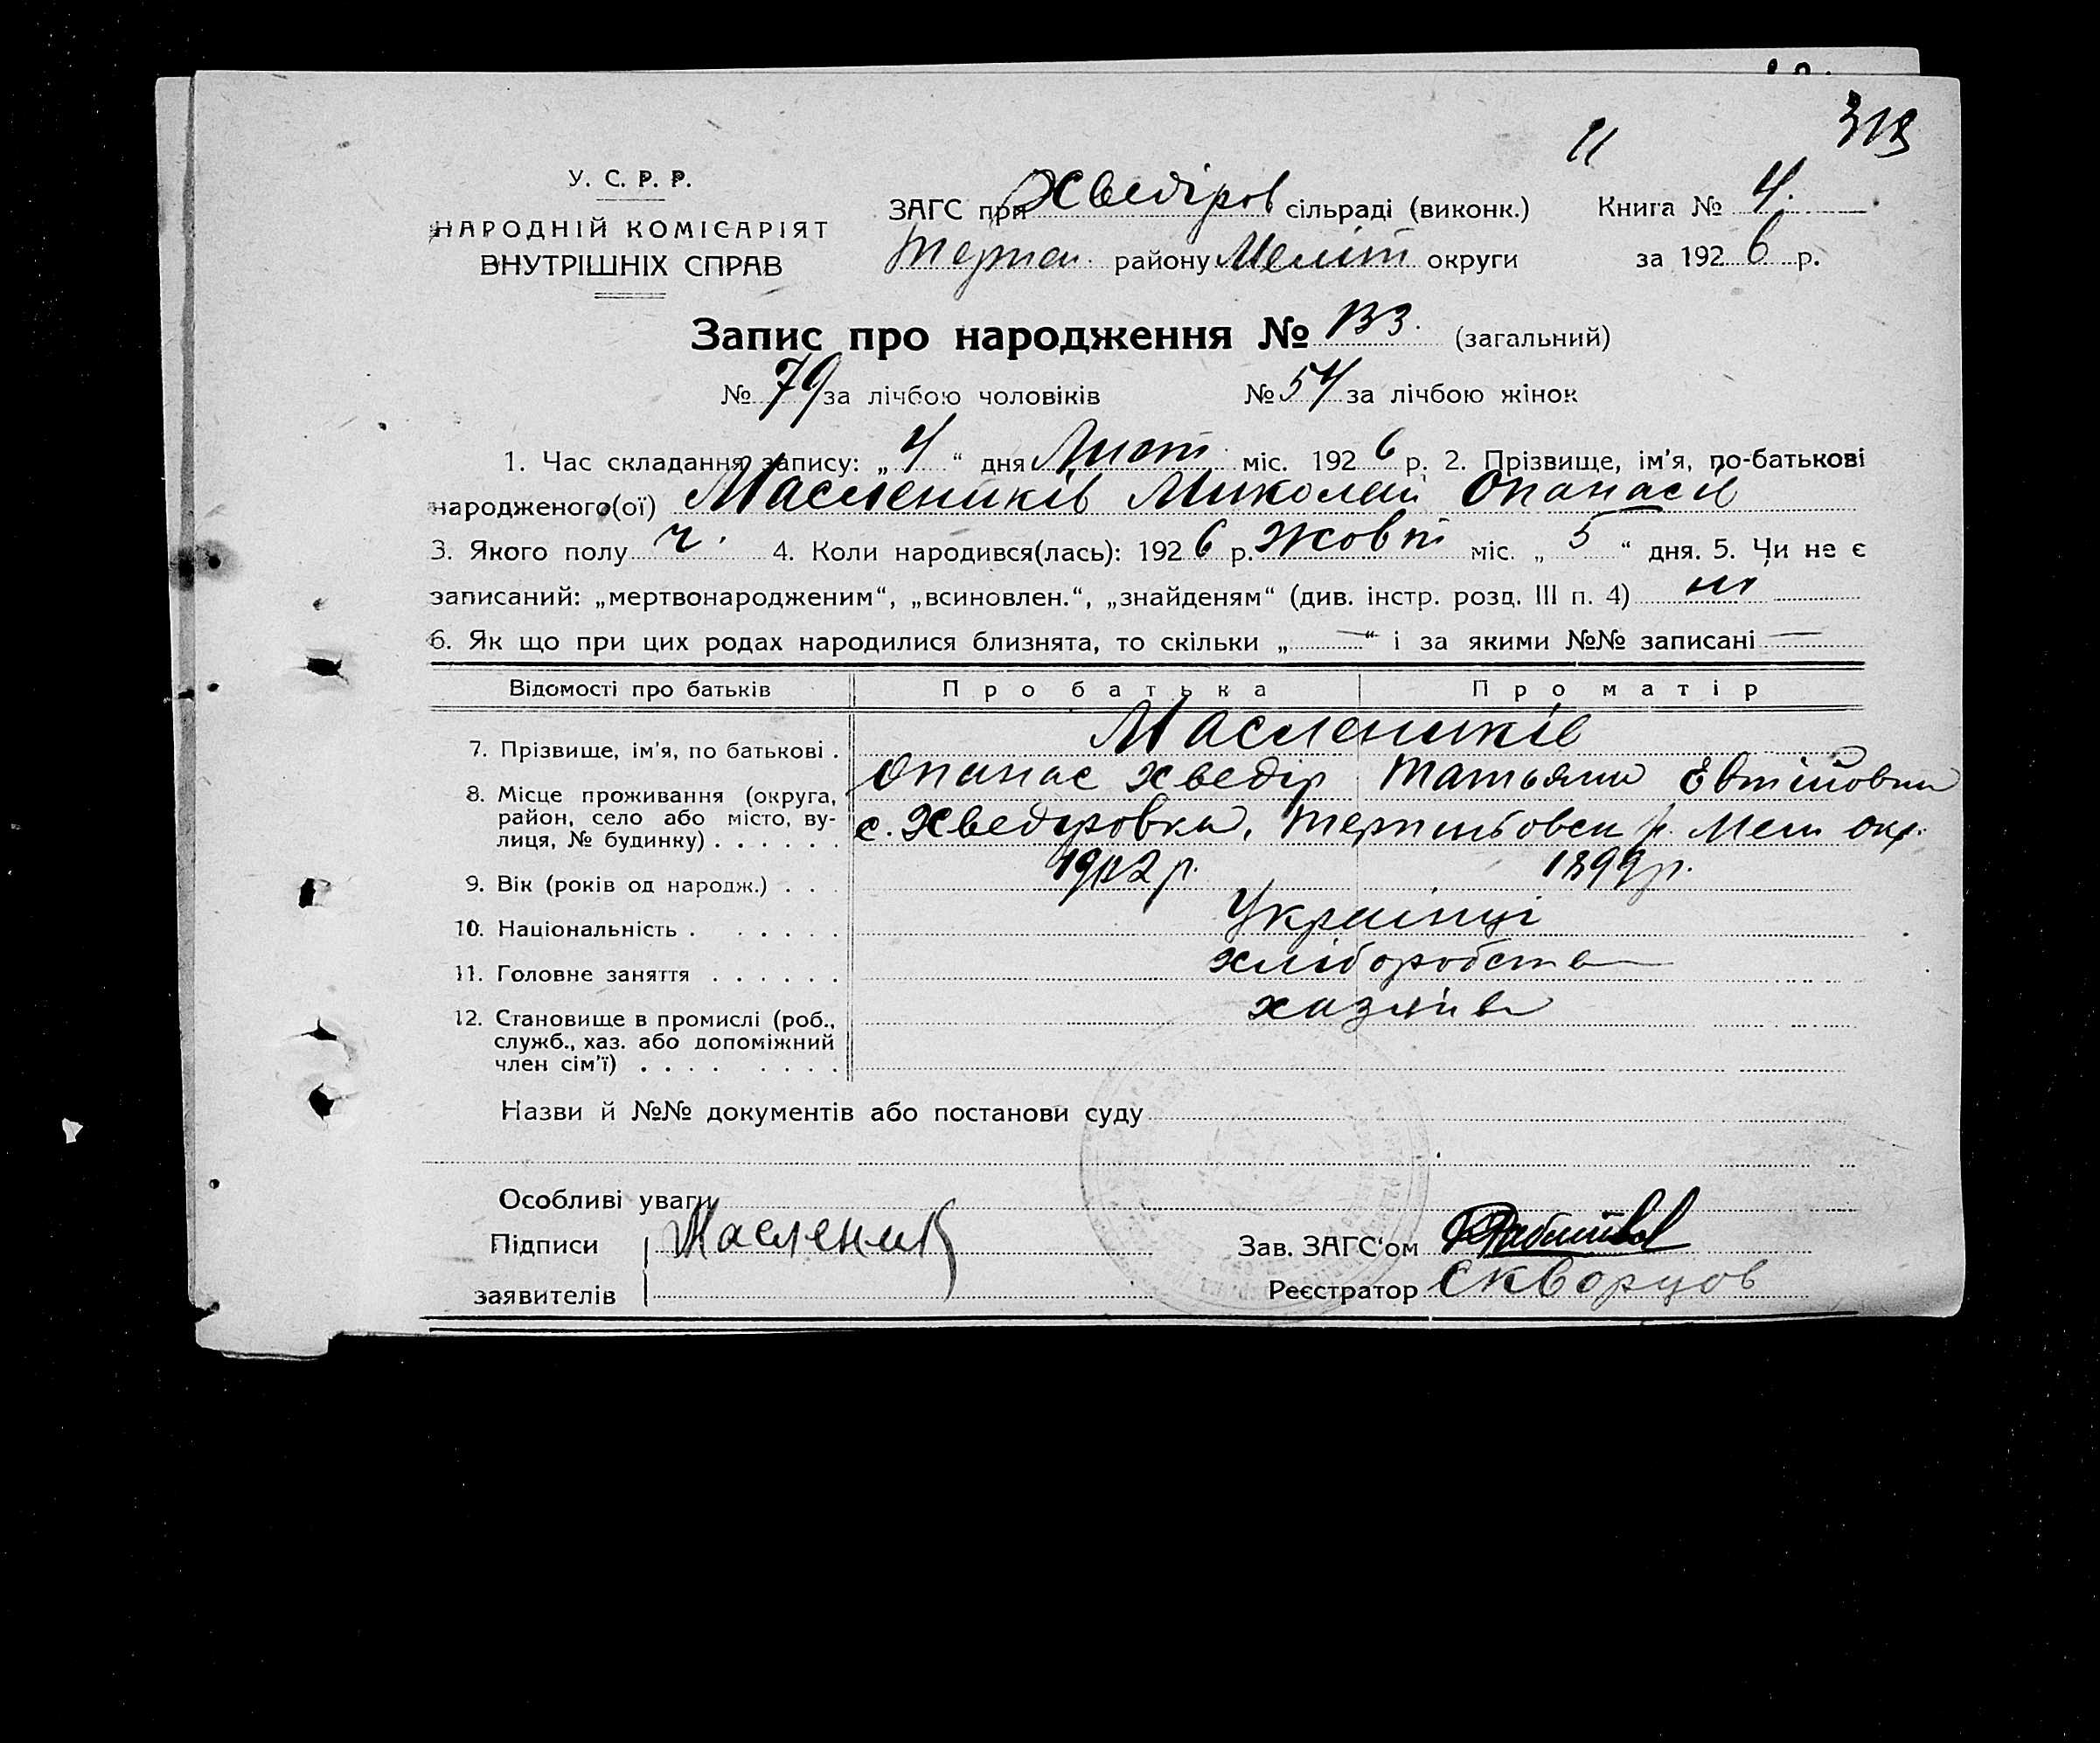 11 313
У. С. Р. Р.
НАРОДНІЙ КОМІСАРІЯТ
ВНУТРІШНІХ СПРАВ
ЗАГС при Хведіров сільраді (виконк.) Книга № 4.
Терпен. району Меліт округи за 1926 р.
Запис про народження № 133. (загальний)
№ 79 за лічбою чоловіків № 54 за лічбою жінок
1. Час складання запису: „4“ дня Лист. міс. 1926 р. 2. Прізвище, ім'я, по-батькові
народженого(ої) Маслеників Миколай Опанасів
3. Якого полу ч. 4. Коли народився(лась): 1926 р. Жовт міс. „5“ дня. 5. Чи не є
записаний: „мертвонародженим“, „всиновлен.“, „знайденям“ (див. інстр. розд. III п. 4) ні
6. Як що при цих родах народилися близнята, то скільки „—“ і за якими №№ записані —
Відомості про батьків Про батька Про матір
7. Прізвище, ім'я, по батькові . Маслеників
Опанас Хведір Татьяна Евтіиовна
8. Місце проживання (округа,
район, село або місто, ву-
лиця, № будинку) . . . . . . с. Хведіровка, р. Мел окр.
9. Вік (років од народж.) . . . 1902 р. 1899 р.
10. Національність . . . . . . Украінці
11. Головне заняття . . . . . . хліборобства
12. Становище в промислі (роб.,
служб., хаз. або допоміжний
член сім'ї) . . . . . . . . хазяїва
Назви й №№ документів або постанови суду
Особливі уваги
Підписи Масленик Зав. ЗАГС'ом
заявителів Реєстратор Скворцов